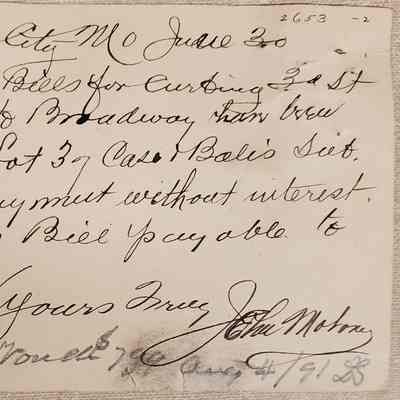 2653 -2
City Mo June 30
Bills for Curbing 3d St
to Broadway have been
Lot 37 Case & Balis Sub.
payment without interest.
Bill payable to
Yours Truly John Mahoney
$ Aug 4/91